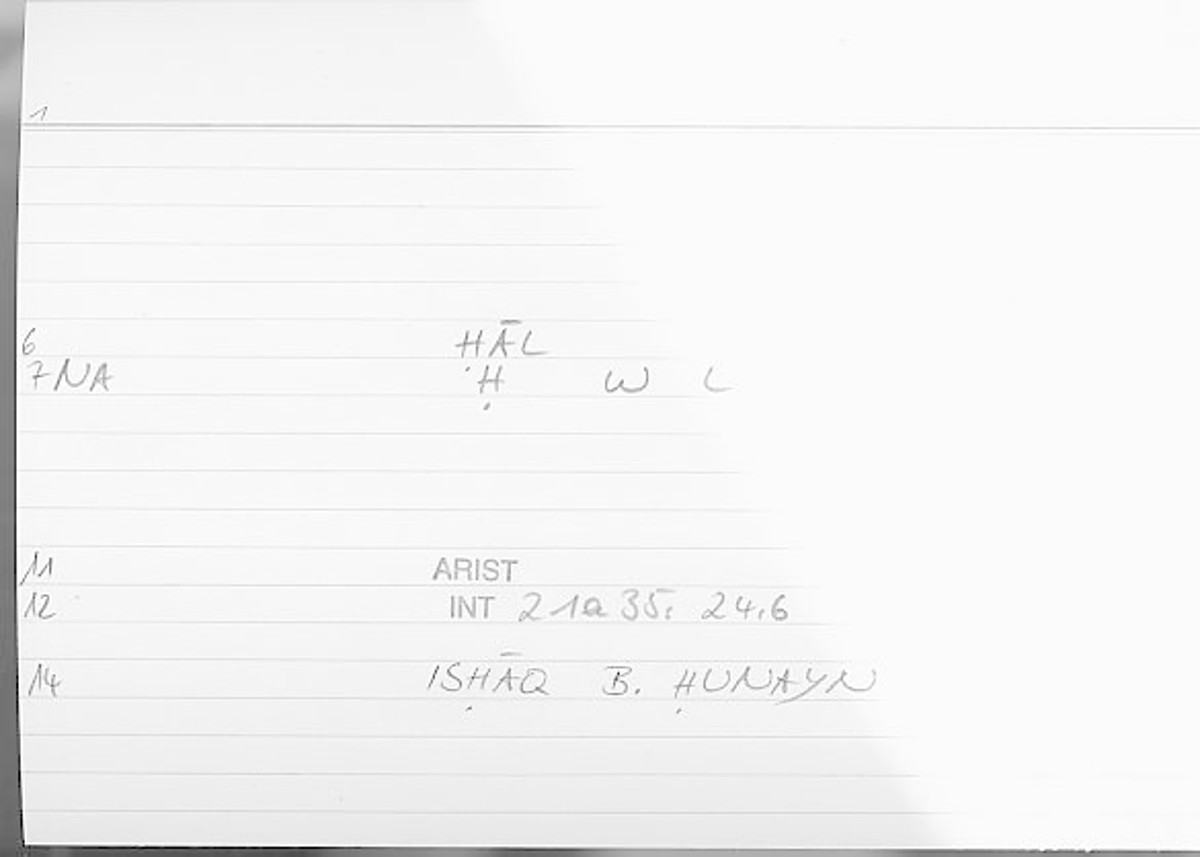 1
6 ḤĀL
7 NA Ḥ W L
11 ARIST
12 INT 21a 35. 24.6
14 ISḤĀQ B. ḤUNAYN